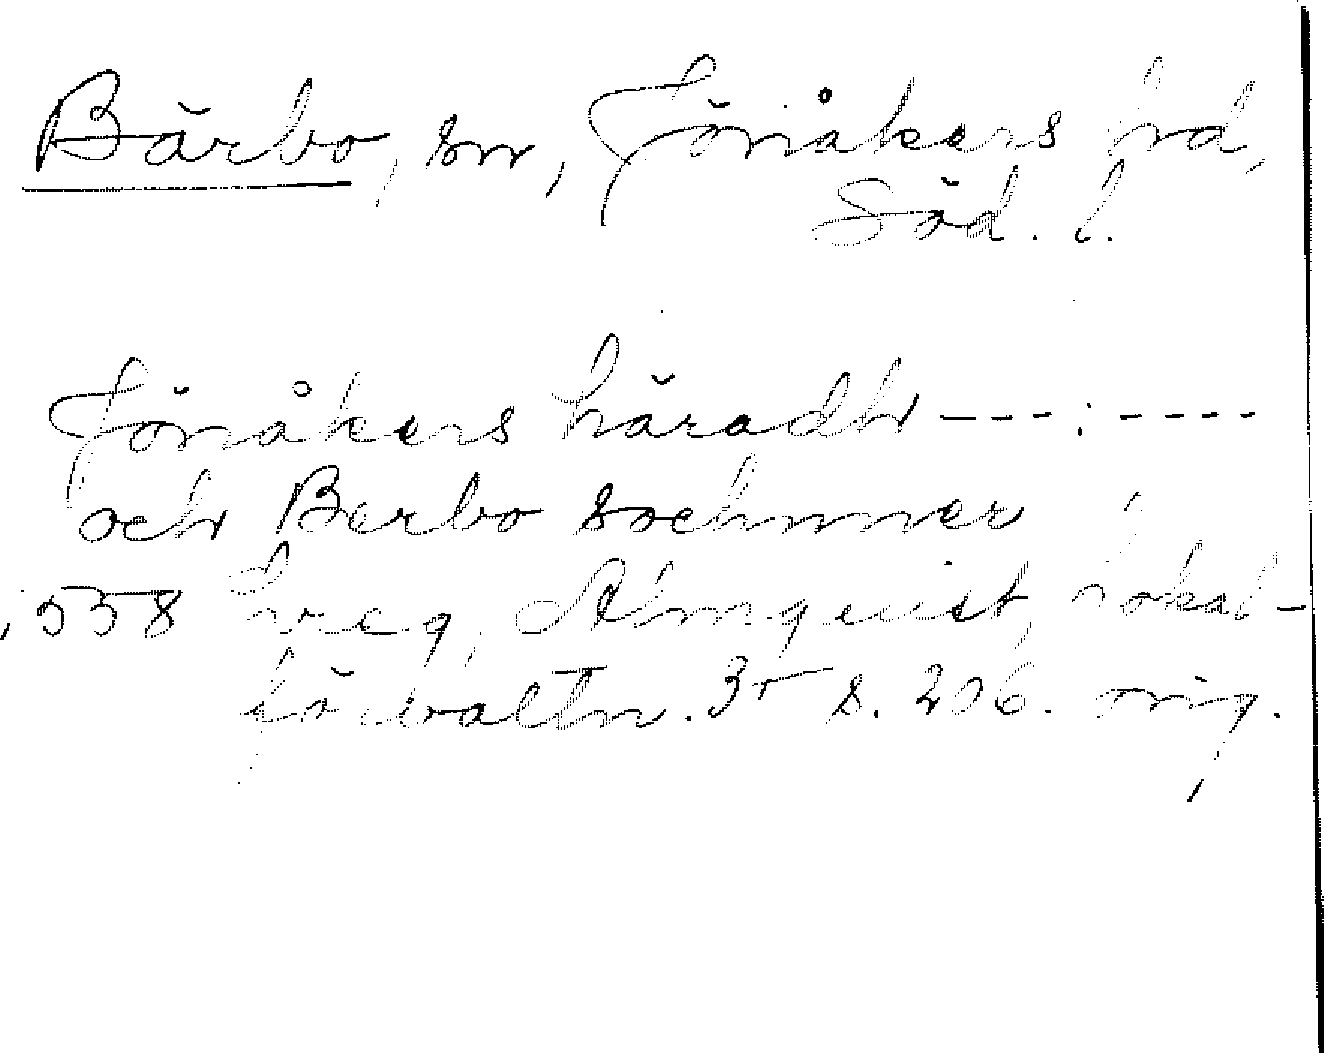 Bärbo, sn, Jönåkers hd,
Söd. l.
Jönåkers häradh ---:----
och Berbo sochnner
1558 reg, Almquist, Lokal-
förvaltn. 3 s. 206. orig.